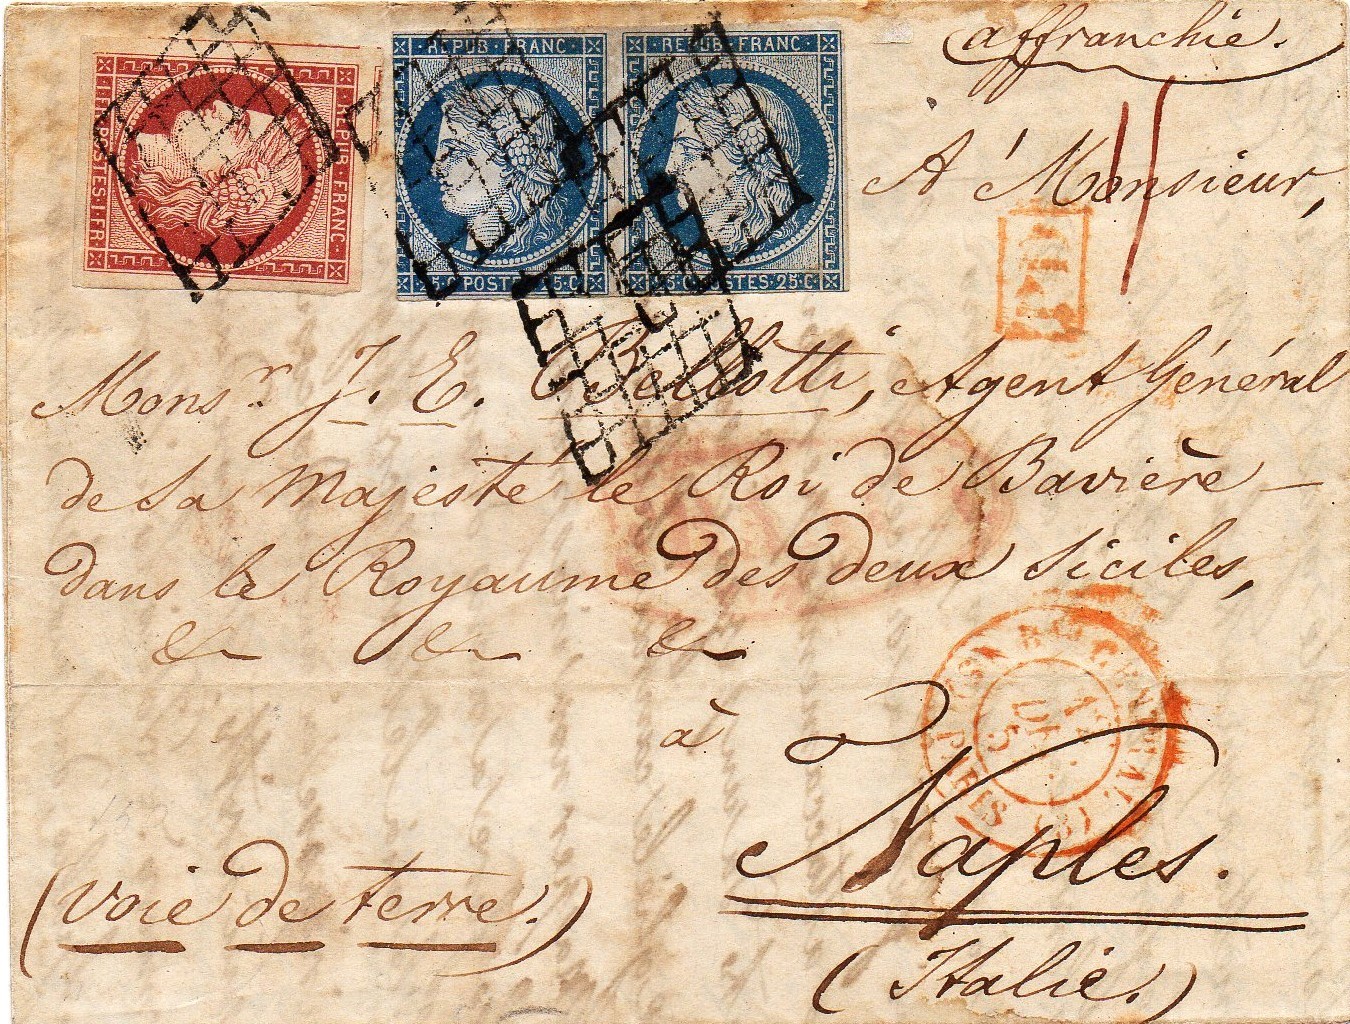 affranchie.
REPUB FRANC
REPUB FRANC
REPUB FRANC
1 FR POSTES 1 FR
25 C POSTES 25 C
25 C POSTES 25 C
A Monsieur,
PD
Mons.r J. E. Bellotti, Agent Général
de Sa Majesté le Roi de Bavière —
dans le Royaume des deux Siciles,
& & &
à
Naples.
(Voie de terre.)
(Italie.)
PARIS (3)